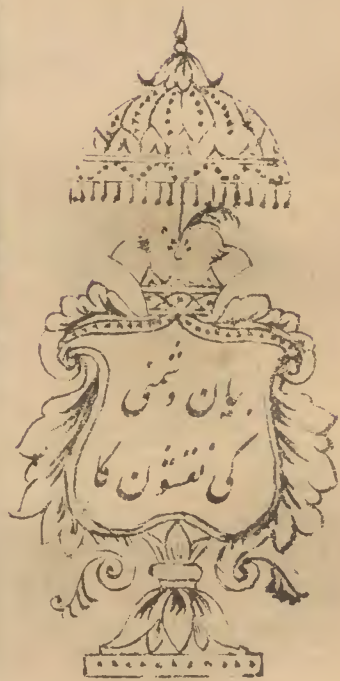 بیان دشمنی
کی نقشون کا